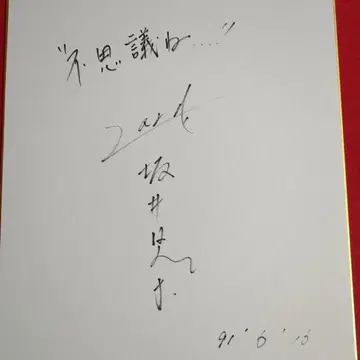 "不思議ね....."
Zard
坂井泉水
91' 6' 16